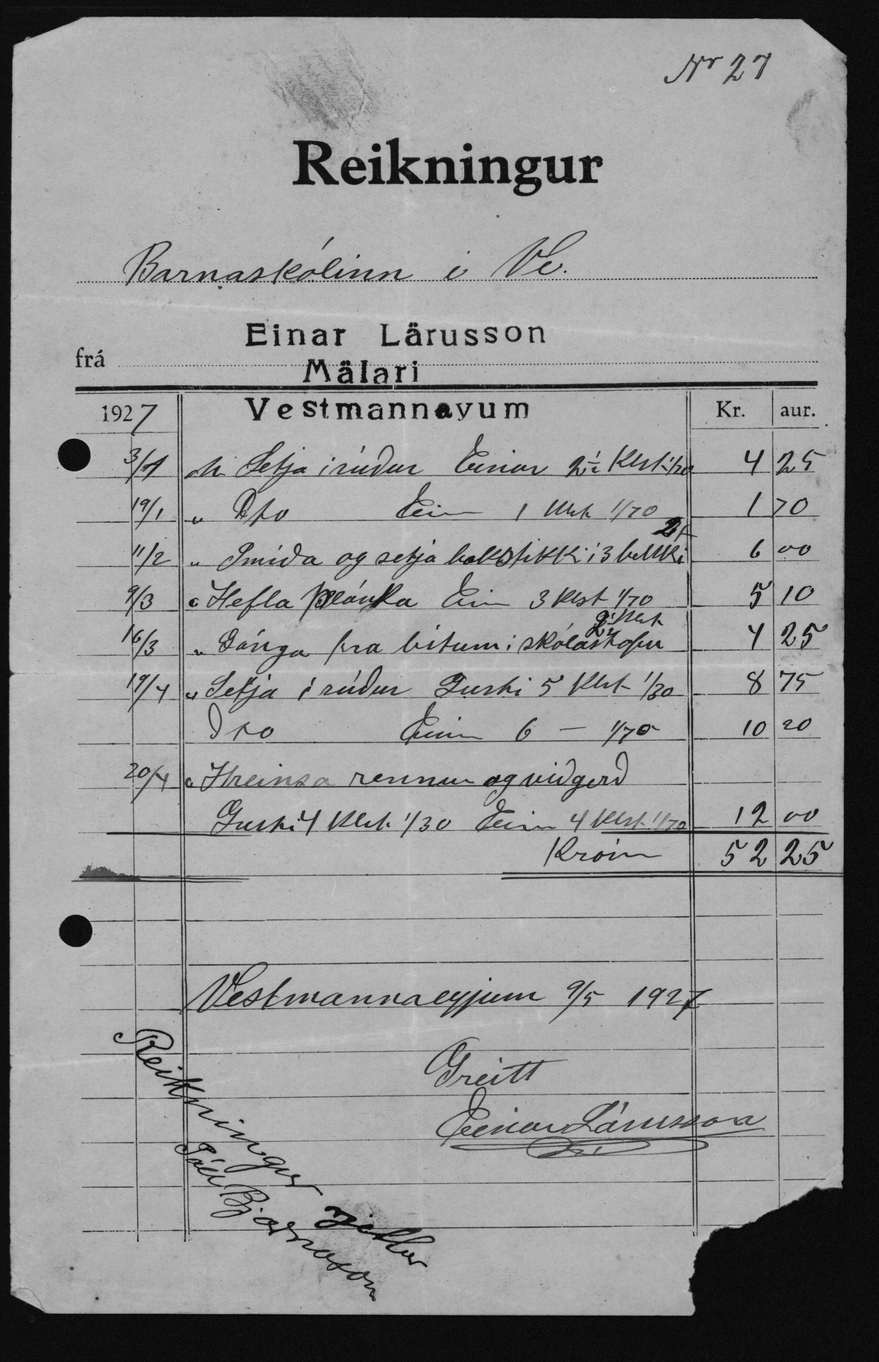 Nr 27
Reikningur
Barnaskólinn í Ve.
Einar Lärusson
frá
Mälari
1927 Vestmannayum Kr. aur.
3/1 Setja í rúður Einar 2½ Klst 1/70 4 25
19/1 " Dto Ein 1 Klst 1/70 1 70
11/2 " Smíða og setja bakstikki í 3 bekki 6 00
9/3 " Hefla planka Ein 3 Klst 1/70 5 10
2½ Klst
16/3 " Gánga fra bitum í skólastofu 4 25
19/4 " Setja í rúður Gusti 5 Klst 1/30 8 75
Dto Einar 6 — 1/70 10 20
20/4 " Hreinsa rennur og viðgerð
Gusti 4 Klst 1/30 Ein 4 Klst 1/70 12 00
Krónur 52 25
Vestmannaeyjum 9/5 1927
Greitt
Einar Lárusson
Reikningur gildur
Páll Bjarnason